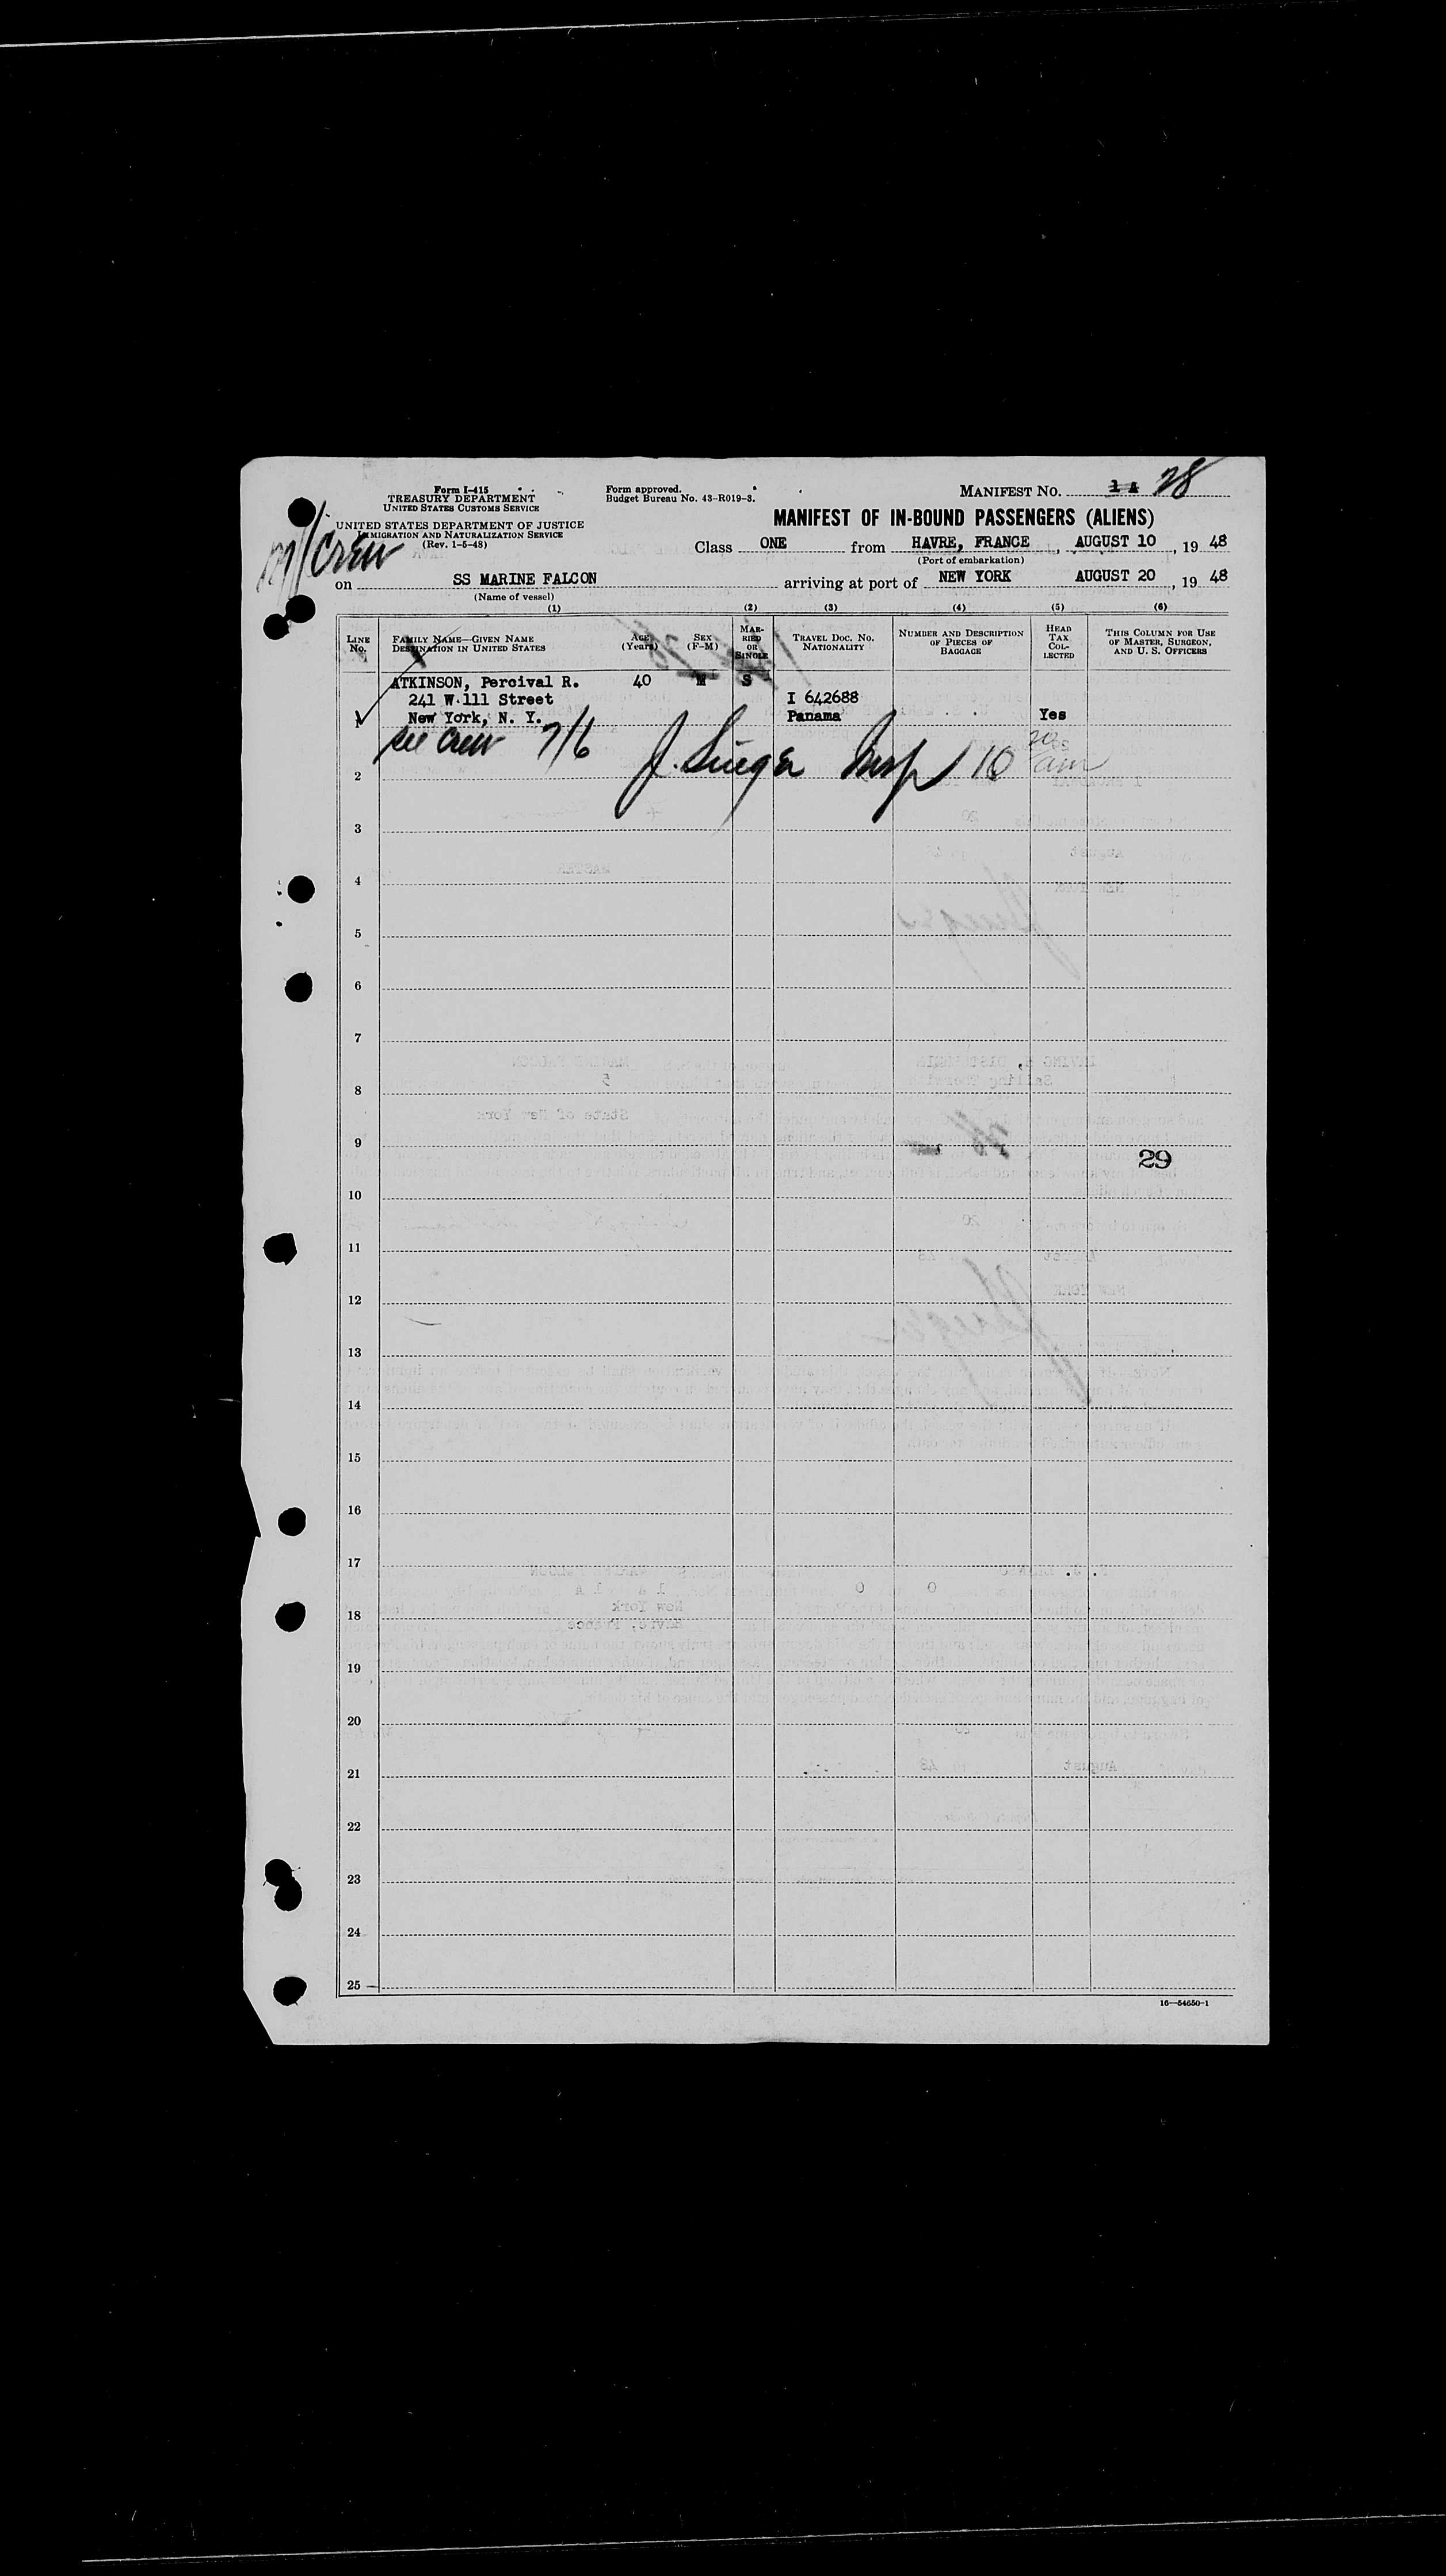 Form I-415
TREASURY DEPARTMENT
UNITED STATES CUSTOMS SERVICE
Form approved.
Budget Bureau No. 43-R019-3.
MANIFEST No. 1 A 28
UNITED STATES DEPARTMENT OF JUSTICE
IMMIGRATION AND NATURALIZATION SERVICE
(Rev. 1-5-48)
Crew
MANIFEST OF IN-BOUND PASSENGERS (ALIENS)
Class ONE from HAVRE, FRANCE, AUGUST 10, 19 48
(Port of embarkation)
on SS MARINE FALCON arriving at port of NEW YORK AUGUST 20, 19 48
(Name of vessel)
(1) (2) (3) (4) (5) (6)
LINE No.
FAMILY NAME—GIVEN NAME
DESTINATION IN UNITED STATES
AGE (Years)
SEX (F-M)
MARRIED OR SINGLE
TRAVEL DOC. No.
NATIONALITY
NUMBER AND DESCRIPTION OF PIECES OF BAGGAGE
HEAD TAX COLLECTED
THIS COLUMN FOR USE OF MASTER, SURGEON, AND U. S. OFFICERS
ATKINSON, Percival R. 40 M S
241 W.111 Street I 642688
1 New York, N. Y. Panama Yes
see crew 7/6 J. Singer Insp 10 20 am
2
3
4
5
6
7
8
9
29
10
11
12
13
14
15
16
17
18
19
20
21
22
23
24
25
16—54650-1